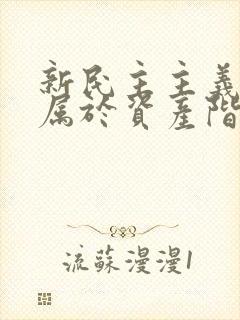 新民主主義
属於資產階
流蘇漫漫1